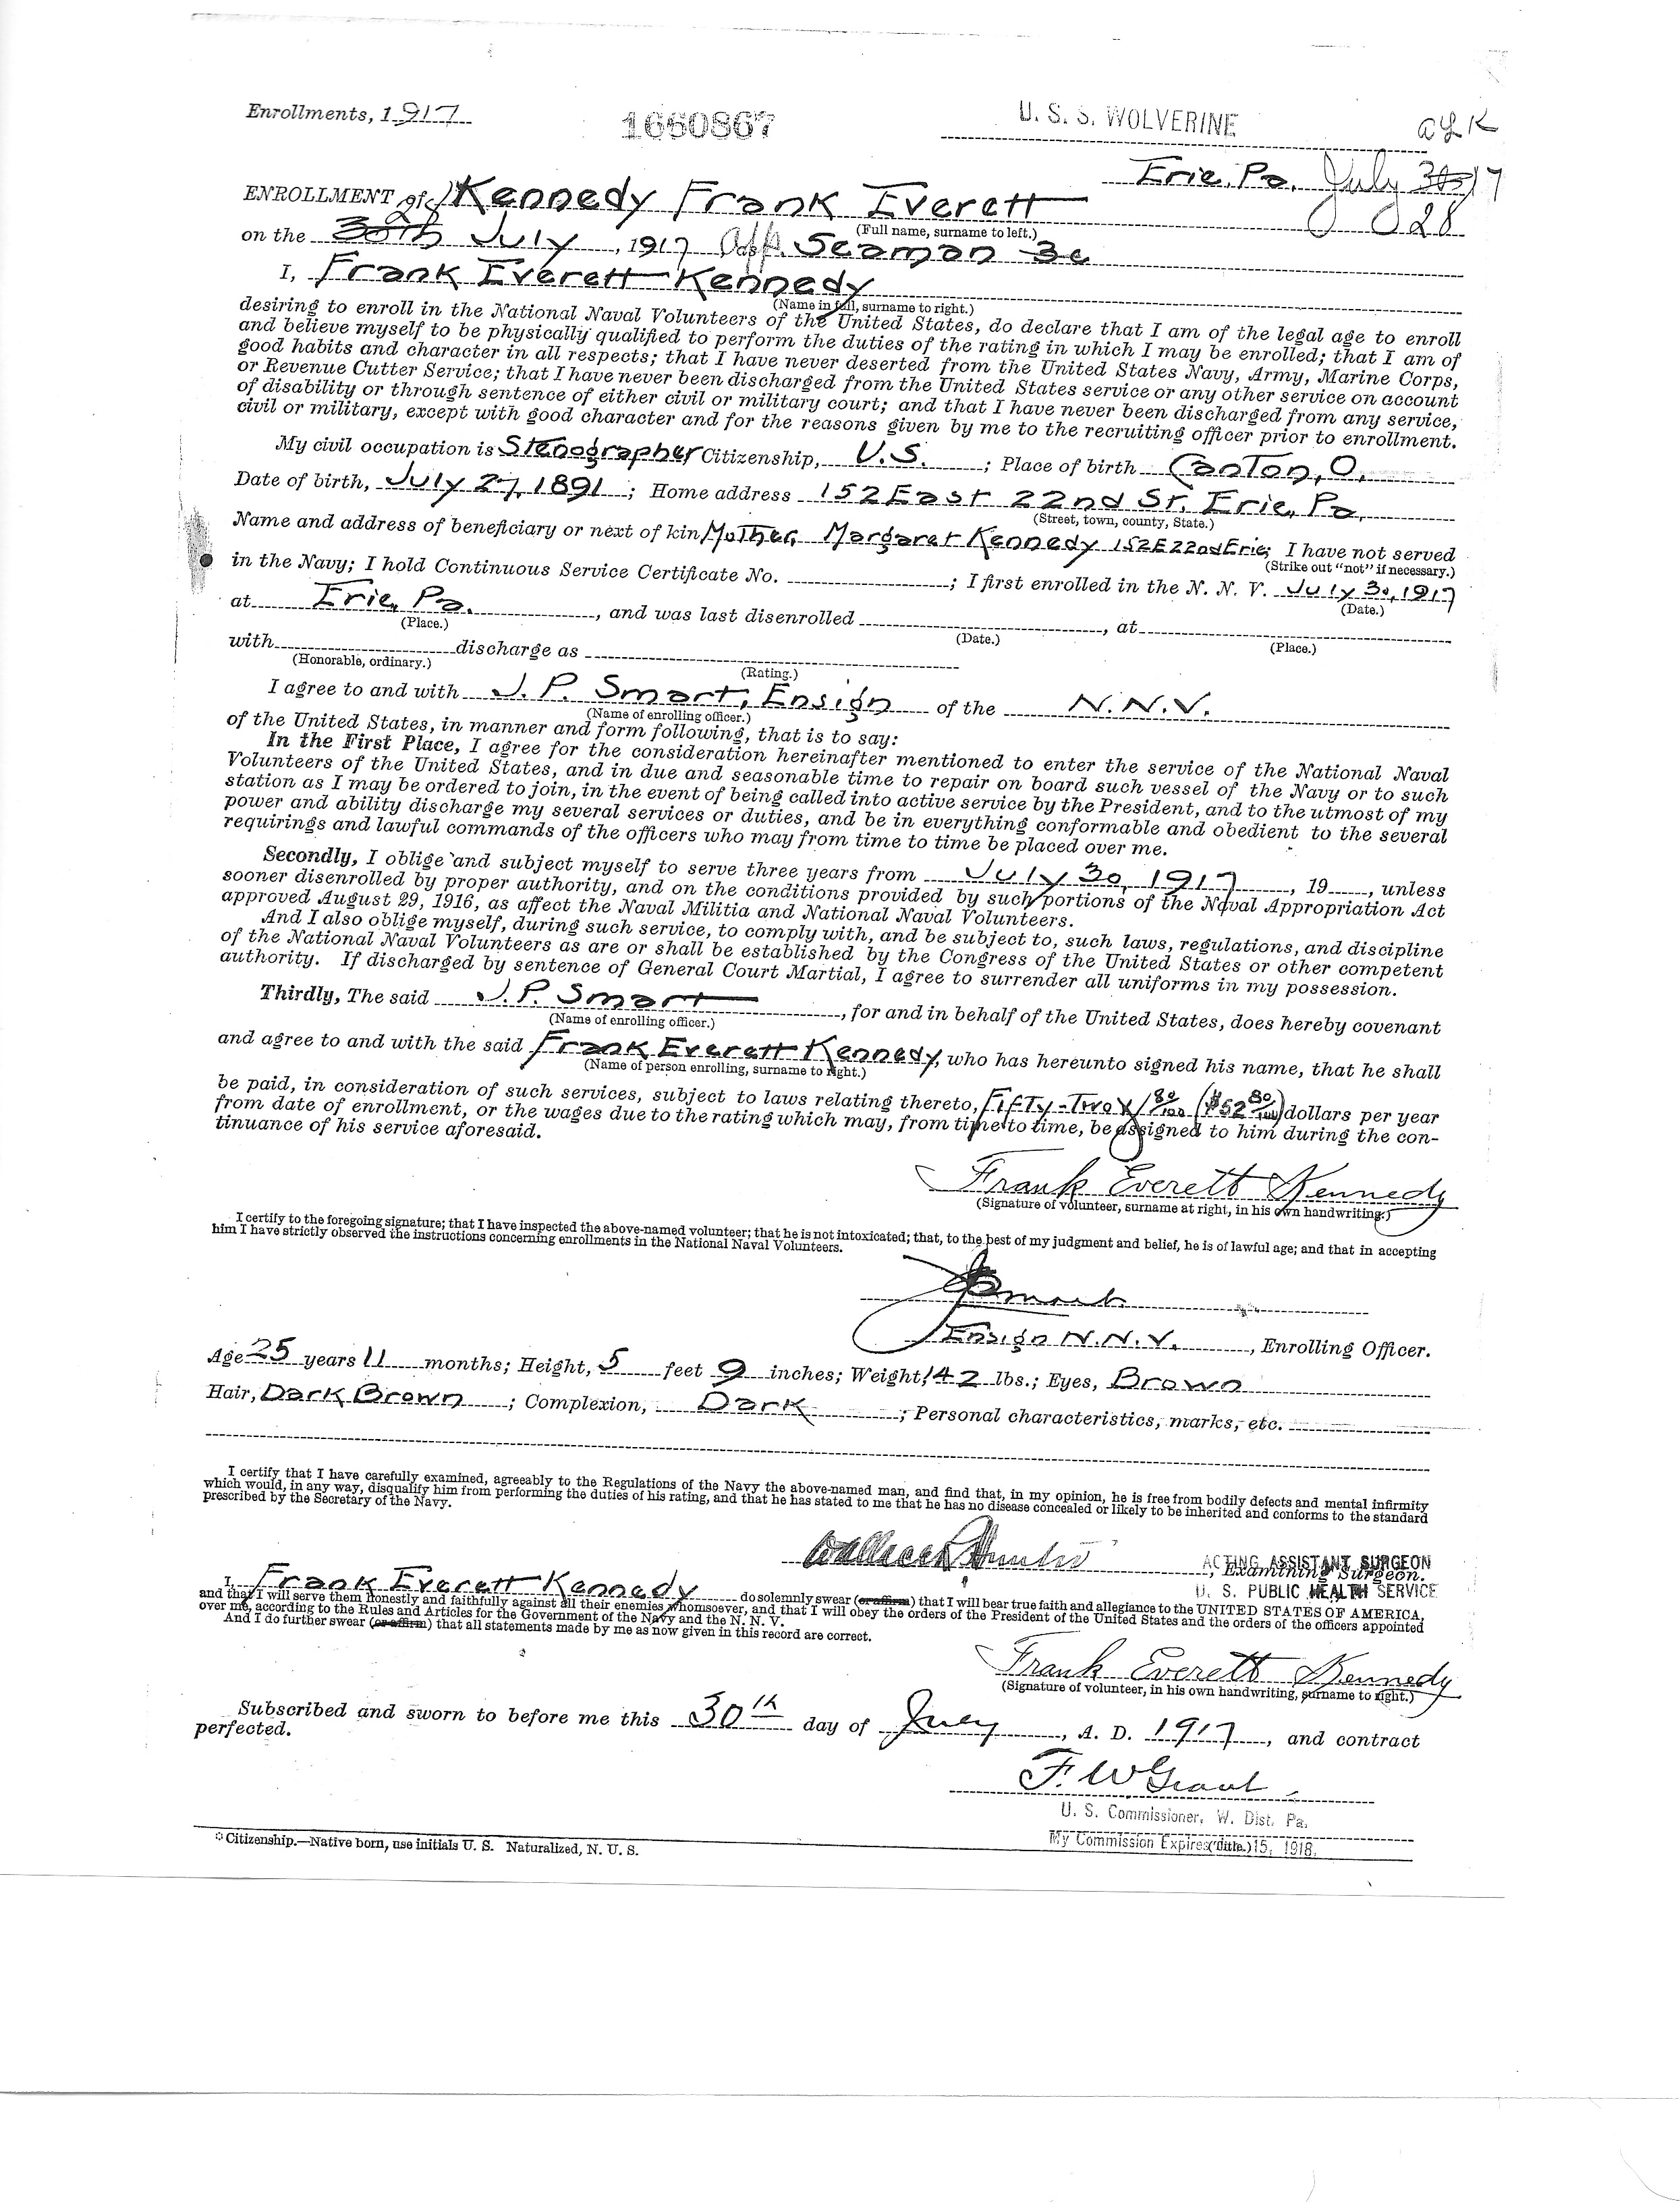 Enrollments, 1917
1660867
U. S. S. WOLVERINE
Erie, Pa. July 30, 17
28
ENROLLMENT of Kennedy Frank Everett
(Full name, surname to left.)
on the 30th July, 1917 App. Seaman 3c
28
I, Frank Everett Kennedy
(Name in full, surname to right.)
desiring to enroll in the National Naval Volunteers of the United States, do declare that I am of the legal age to enroll
and believe myself to be physically qualified to perform the duties of the rating in which I may be enrolled; that I am of
good habits and character in all respects; that I have never deserted from the United States Navy, Army, Marine Corps,
or Revenue Cutter Service; that I have never been discharged from the United States service or any other service on account
of disability or through sentence of either civil or military court; and that I have never been discharged from any service,
civil or military, except with good character and for the reasons given by me to the recruiting officer prior to enrollment.
My civil occupation is Stenographer Citizenship, U.S. ; Place of birth Canton, O.
Date of birth, July 27, 1891 ; Home address 152 East 22nd St. Erie, Pa.
(Street, town, county, State.)
Name and address of beneficiary or next of kin Mother, Margaret Kennedy 152 E 22nd Erie; I have not served
(Strike out "not" if necessary.)
in the Navy; I hold Continuous Service Certificate No. ; I first enrolled in the N. N. V. July 30, 1917
(Date.)
at Erie, Pa. , and was last disenrolled , at
(Place.) (Date.) (Place.)
with discharge as
(Honorable, ordinary.) (Rating.)
I agree to and with J. P. Smart, Ensign of the N.N.V.
(Name of enrolling officer.)
of the United States, in manner and form following, that is to say:
In the First Place, I agree for the consideration hereinafter mentioned to enter the service of the National Naval
Volunteers of the United States, and in due and seasonable time to repair on board such vessel of the Navy or to such
station as I may be ordered to join, in the event of being called into active service by the President, and to the utmost of my
power and ability discharge my several services or duties, and be in everything conformable and obedient to the several
requirings and lawful commands of the officers who may from time to time be placed over me.
Secondly, I oblige and subject myself to serve three years from July 30, 1917 , 19 , unless
sooner disenrolled by proper authority, and on the conditions provided by such portions of the Naval Appropriation Act
approved August 29, 1916, as affect the Naval Militia and National Naval Volunteers.
And I also oblige myself, during such service, to comply with, and be subject to, such laws, regulations, and discipline
of the National Naval Volunteers as are or shall be established by the Congress of the United States or other competent
authority. If discharged by sentence of General Court Martial, I agree to surrender all uniforms in my possession.
Thirdly, The said J. P. Smart , for and in behalf of the United States, does hereby covenant
(Name of enrolling officer.)
and agree to and with the said Frank Everett Kennedy, who has hereunto signed his name, that he shall
(Name of person enrolling, surname to right.)
be paid, in consideration of such services, subject to laws relating thereto, Fifty-Two & 80/100 ($52 80/100) dollars per year
from date of enrollment, or the wages due to the rating which may, from time to time, be assigned to him during the con-
tinuance of his service aforesaid.
Frank Everett Kennedy
(Signature of volunteer, surname at right, in his own handwriting.)
I certify to the foregoing signature; that I have inspected the above-named volunteer; that he is not intoxicated; that, to the best of my judgment and belief, he is of lawful age; and that in accepting
him I have strictly observed the instructions concerning enrollments in the National Naval Volunteers.
JPSmart
Ensign N.N.V. , Enrolling Officer.
Age 25 years 11 months; Height, 5 feet 9 inches; Weight, 142 lbs.; Eyes, Brown
Hair, Dark Brown ; Complexion, Dark ; Personal characteristics, marks, etc.
I certify that I have carefully examined, agreeably to the Regulations of the Navy the above-named man, and find that, in my opinion, he is free from bodily defects and mental infirmity
which would, in any way, disqualify him from performing the duties of his rating, and that he has stated to me that he has no disease concealed or likely to be inherited and conforms to the standard
prescribed by the Secretary of the Navy.
ACTING ASSISTANT SURGEON
, Examining Surgeon.
U. S. PUBLIC HEALTH SERVICE
I, Frank Everett Kennedy do solemnly swear (or affirm) that I will bear true faith and allegiance to the UNITED STATES OF AMERICA,
and that I will serve them honestly and faithfully against all their enemies whomsoever, and that I will obey the orders of the President of the United States and the orders of the officers appointed
over me, according to the Rules and Articles for the Government of the Navy and the N. N. V.
And I do further swear (or affirm) that all statements made by me as now given in this record are correct.
Frank Everett Kennedy
(Signature of volunteer, in his own handwriting, surname to right.)
Subscribed and sworn to before me this 30th day of July , A. D. 1917 , and contract
perfected.
F. W Grant
U. S. Commissioner, W. Dist. Pa.
My Commission Expires 15, 1918.
(Title.)
Citizenship.—Native born, use initials U. S. Naturalized, N. U. S.